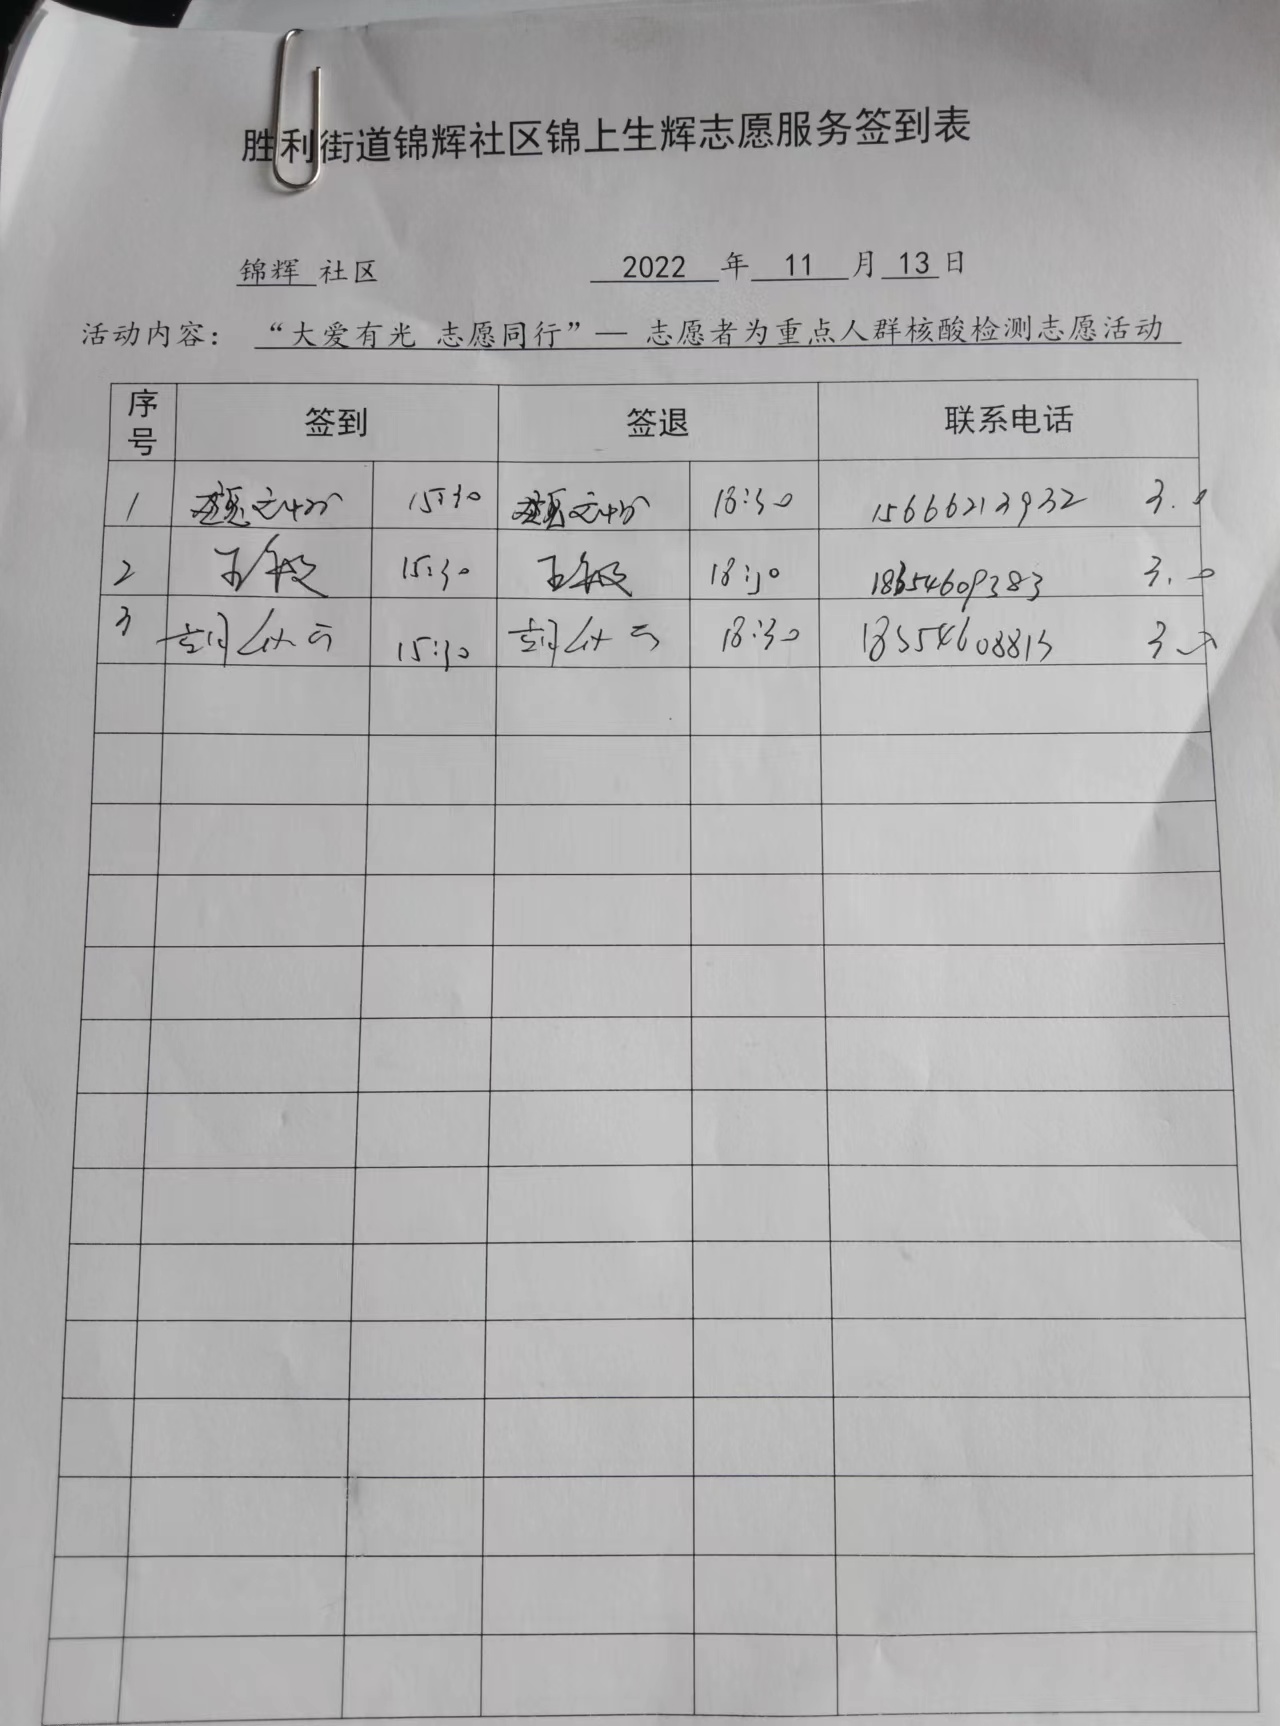 胜利街道锦辉社区锦上生辉志愿服务签到表
锦辉 社区 2022 年 11 月 13 日
活动内容: “大爱有光 志愿同行”— 志愿者为重点人群核酸检测志愿活动
序号 签到 签退 联系电话
1 15:30 18:30 15666213932 3.0
2 王敏 15:30 王敏 18:30 18354609383 3.0
3 15:30 18:30 18354608813 3.0